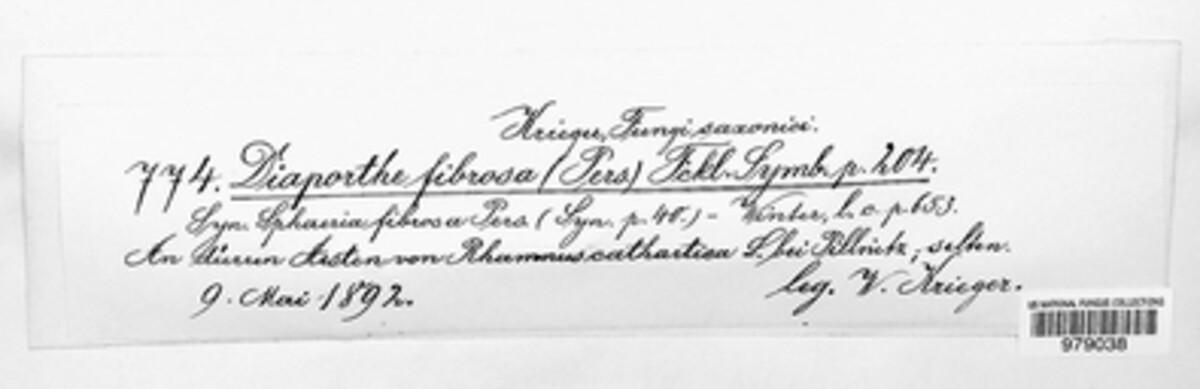 Krieger, Fungi saxonici.
774. Diaporthe fibrosa (Pers) Fckl. Symb. p. 204.
Syn. Sphaeria fibrosa Pers. (Syn. p. 40.) – Winter, l. c. p. 653.
An dürren Aesten von Rhamnus cathartica L. bei Pillnitz, selten.
9. Mai 1892.
leg. W. Krieger.
US NATIONAL FUNGUS COLLECTIONS
979038